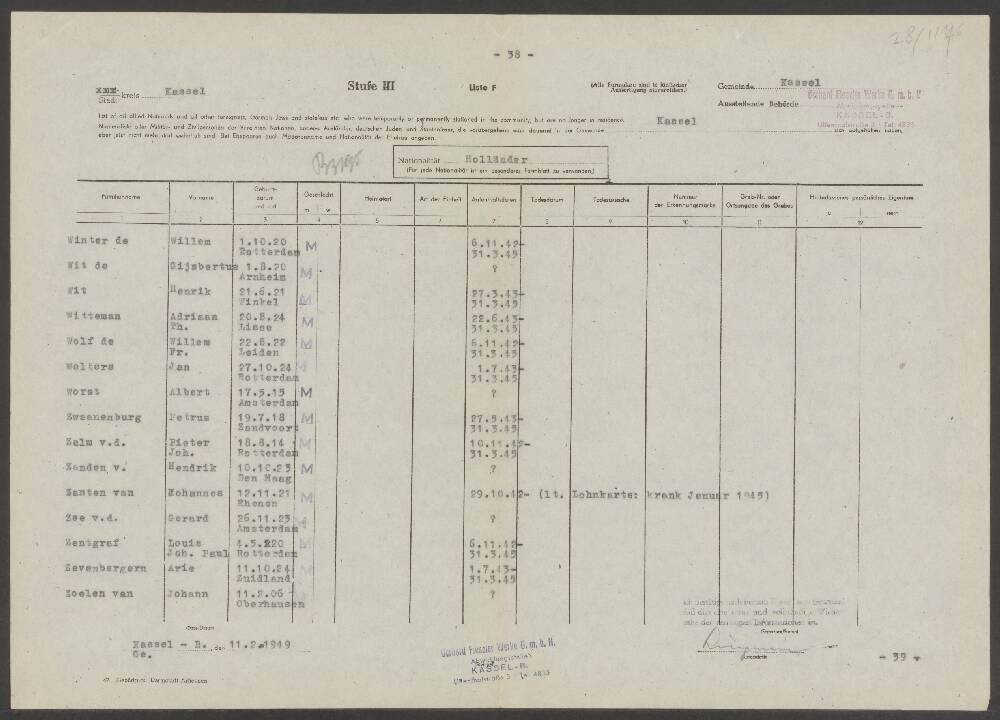 - 38 -
28/1176
XXX Stadt- kreis Kassel
Stufe III
Liste F
(Alle Formulare sind in fünffacher Ausfertigung einzureichen.)
Gemeinde Kassel
Ausstellende Behörde
Gerhard Fieseler Werke G. m. b. H.
Abwicklungsstelle
KASSEL-B.
List of all allied Nationals and all other foreigners, German Jews and stateless etc. who were temporarily or permanently stationed in the community, but are no longer in residence.
Namensliste aller Militär- und Zivilpersonen der Vereinten Nationen, anderer Ausländer, deutscher Juden und Staatenloser, die vorübergehend oder dauernd in der Gemeinde Kassel
aber jetzt nicht mehr dort wohnhaft sind. Bei Ehepaaren auch Mädchenname und Nationalität der Ehefrau angeben.
Nationalität Holländer
(Für jede Nationalität ist ein besonderes Formblatt zu verwenden.)
Familienname Vorname Geburts- datum und -ort Geschlecht m w Heimatort Art der Einheit Aufenthaltsdaten Todesdatum Todesursache Nummer der Erkennungsmarke Grab-Nr. oder Ortsangabe des Grabes Hinterlassenes persönliches Eigentum ja nein
Winter de Willem 1.10.20 M 6.11.42-
Rotterdam 31.3.45
Wit de Gijsbertus 1.8.20 M ?
Arnheim
Wit Henrik 21.6.21 M 27.3.43-
Winkel 31.3.45
Witteman Adriaan 20.8.24 M 22.6.43-
Th. Lisse 31.3.45
Wolf de Willem 22.8.22 M 6.11.42-
Fr. Leiden 31.3.45
Wolters Jan 27.10.24 M 1.7.43-
Rotterdam 31.3.45
Worst Albert 17.5.15 M ?
Amsterdam
Zwaanenburg Petrus 19.7.18 M 27.5.43-
Zandvoort 31.3.45
Zalm v.d. Pieter 18.8.14 M 10.11.42-
Joh. Rotterdam 31.3.45
Zanden v. Hendrik 10.10.23 M ?
Den Haag
Zanten van Johannes 12.11.21 M 29.10.42- (lt. Lohnkarte: krank Januar 1945)
Rhenen
Zee v.d. Gerard 26.11.23 M ?
Amsterdam
Zentgraf Louis 4.5.220 M 6.11.42-
Joh. Paul Rotterdam 31.3.45
Zevenbergern Arie 11.10.24 M 1.7.43-
Zuidland 31.3.45
Zoelen van Johann 11.2.06 ?
Oberhausen
(Ort/Datum)
Kassel - B. den 11.2.1949
Ge.
Gerhard Fieseler Werke G. m. b. H.
Abwicklungsstelle
KASSEL-B.
- 39 -